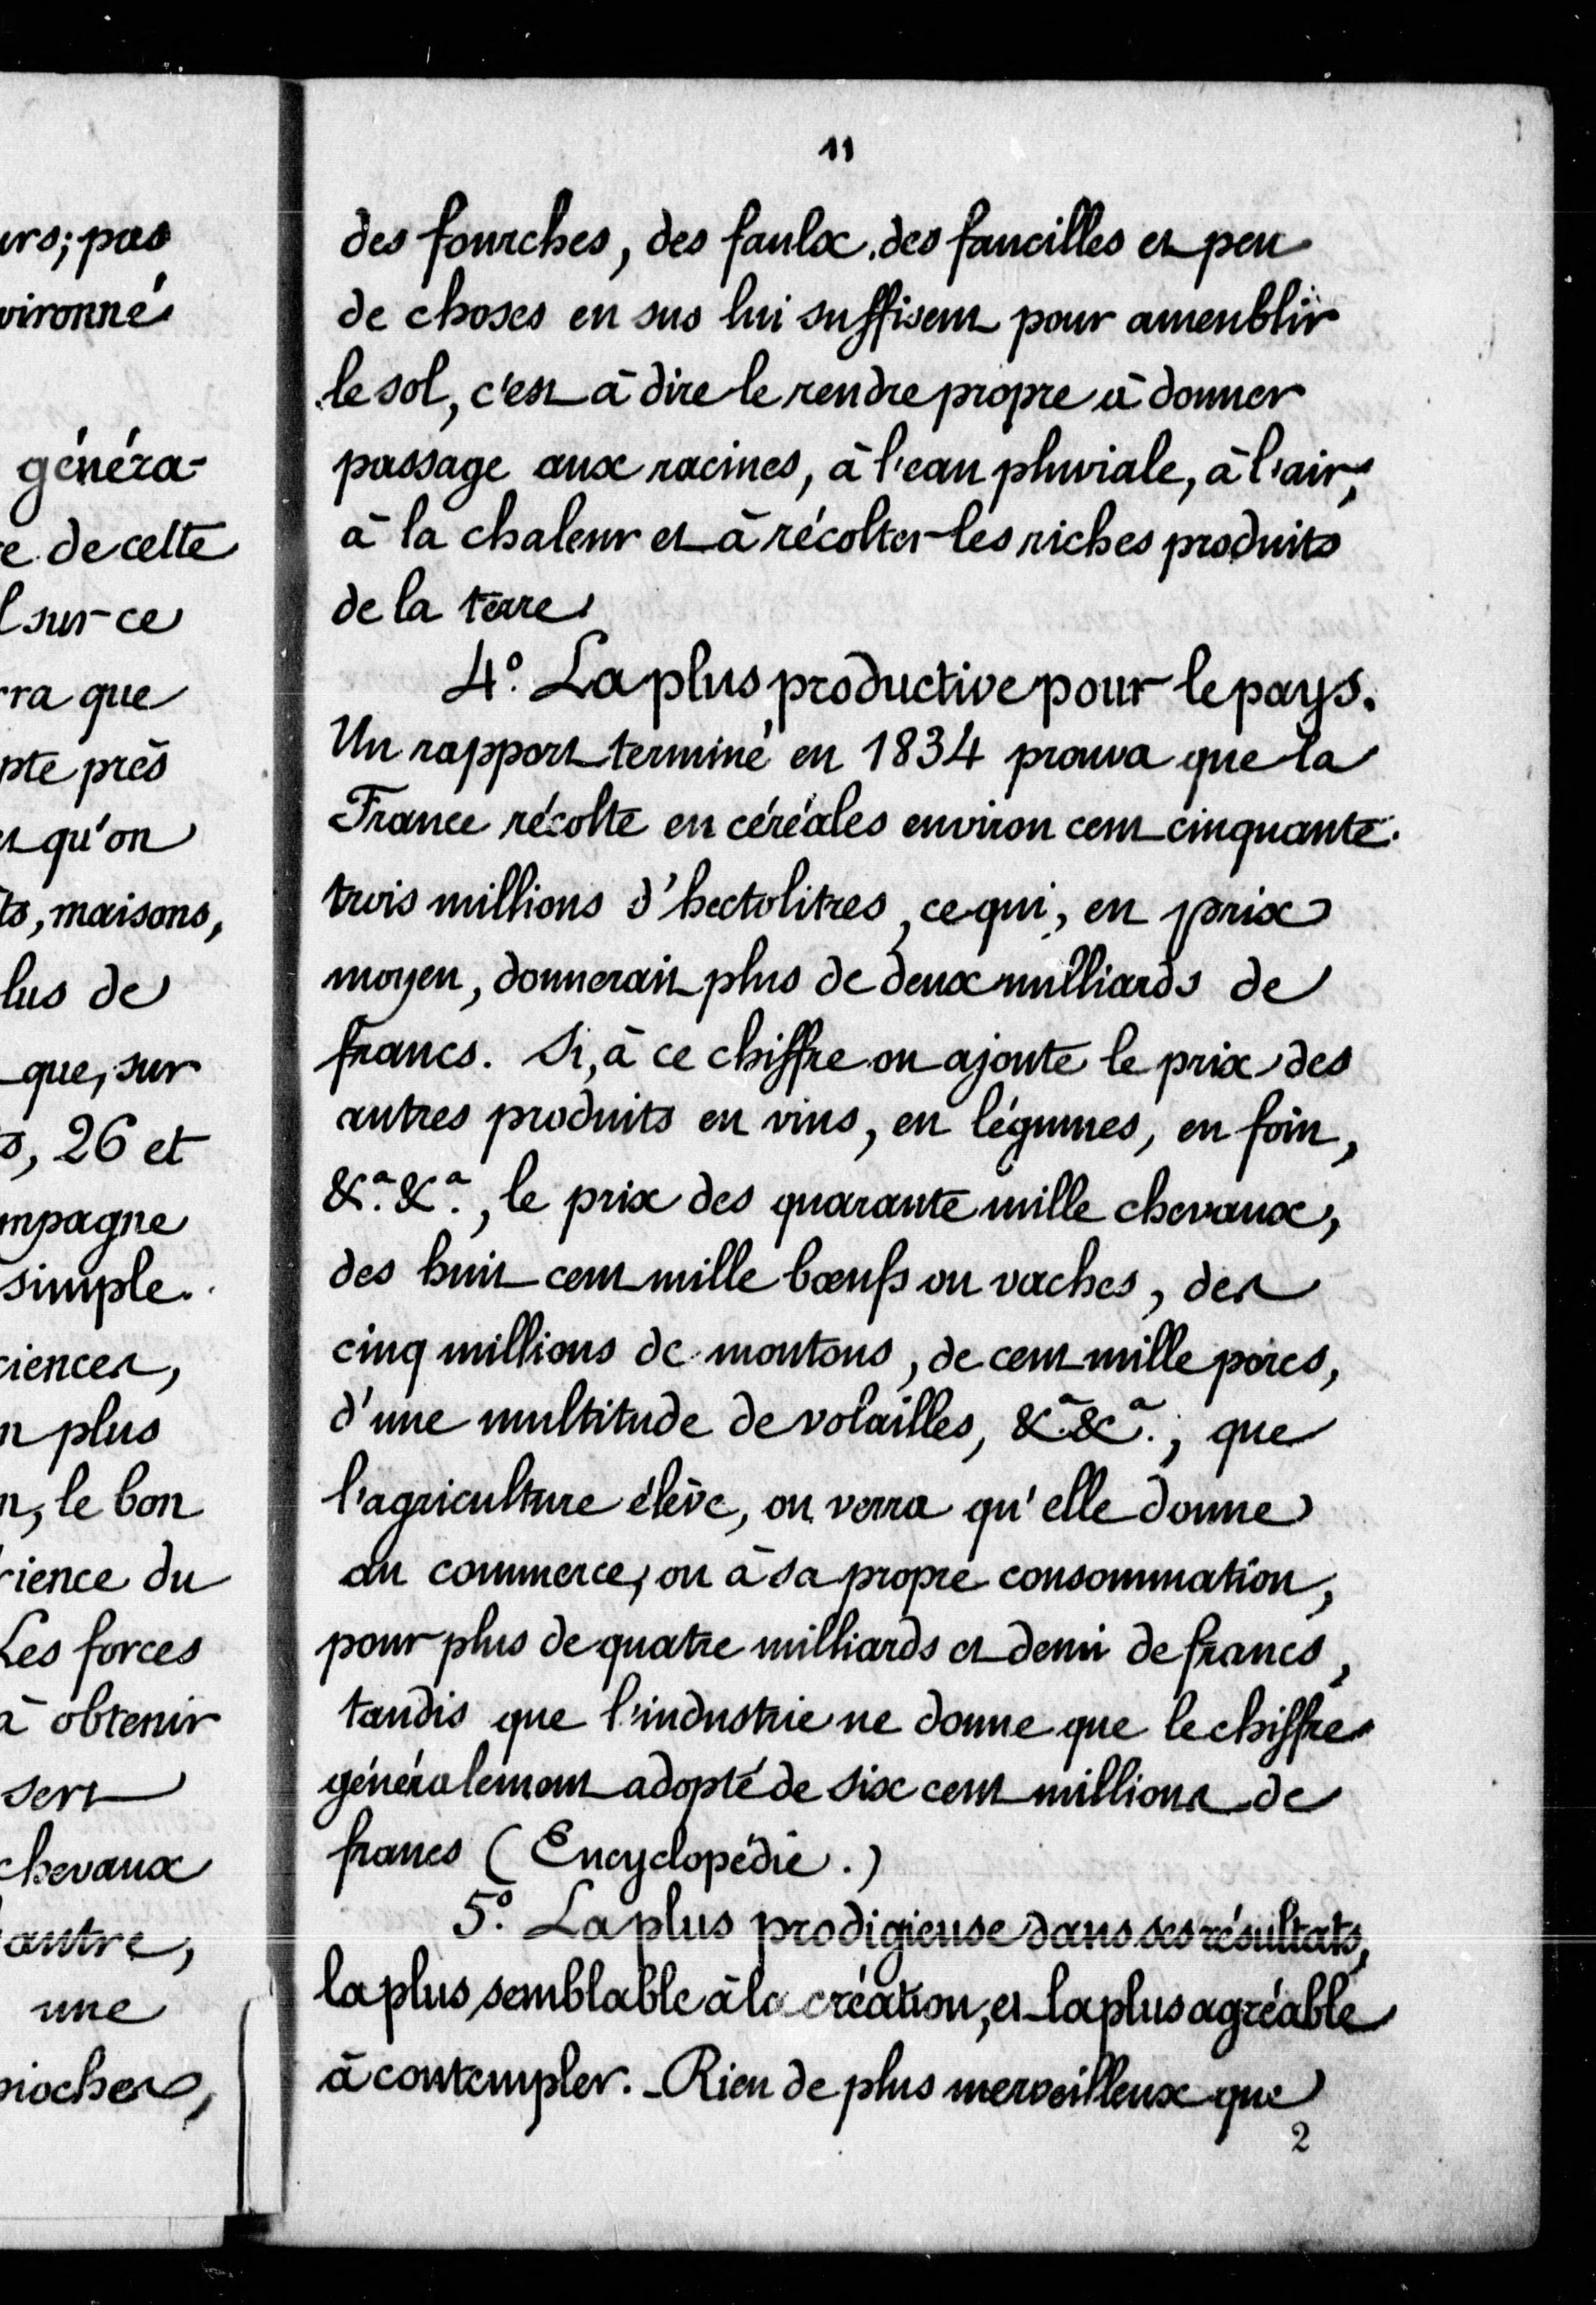 11
des fourches, des faulx, des faucilles et peu
de choses en sus lui suffisent pour ameublir
le sol, c'est à dire le rendre propre à donner
passage aux racines, à l'eau pluviale, à l'air,
à la chaleur et à récolter les riches produits
de la terre
4.° La plus productive pour le pays.
Un rapport terminé en 1834 prouva que la
France récolte en céréales environ cent cinquante-
trois millions d'hectolitres, ce qui, en prix
moyen, donnerait plus de deux milliards de
francs. Si, à ce chiffre on ajoute le prix des
autres produits en vins, en légumes, en foin,
&.ª &.ª, le prix des quarante mille chevaux,
des huit cent mille bœufs ou vaches, des
cinq millions de moutons, de cent mille porcs,
d'une multitude de volailles, &.ª &.ª, que
l'agriculture élève, on verra qu'elle donne
au commerce, ou à sa propre consommation,
pour plus de quatre milliards et demi de francs,
tandis que l'industrie ne donne que le chiffre
généralement adopté de six cent millions de
francs (Encyclopédie.)
5.° La plus prodigieuse dans ses résultats,
la plus semblable à la création, et la plus agréable
à contempler. - Rien de plus merveilleux que
2
urs; pas
vironné
généra-
e de cette
l sur ce
rra que
pte près
et qu'on
ts, maisons,
lus de
que, sur
s, 26 et
mpagne
simple.
ciences,
n plus
n, le bon
rience du
Les forces
à obtenir
sert
chevaux
autre,
une
pioches,